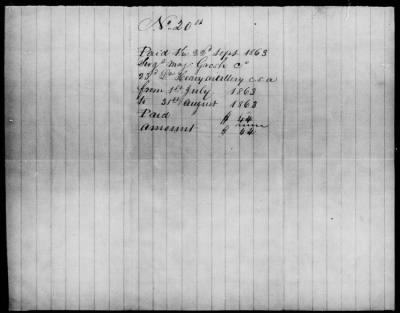 No 20th
Paid the 22d Sept. 1863
Sergt Maj Grosh Co
23d Heavy Artillery C.S.A
from 1st July 1863
to 31st August 1863
Paid $ 44
Amount $ 44